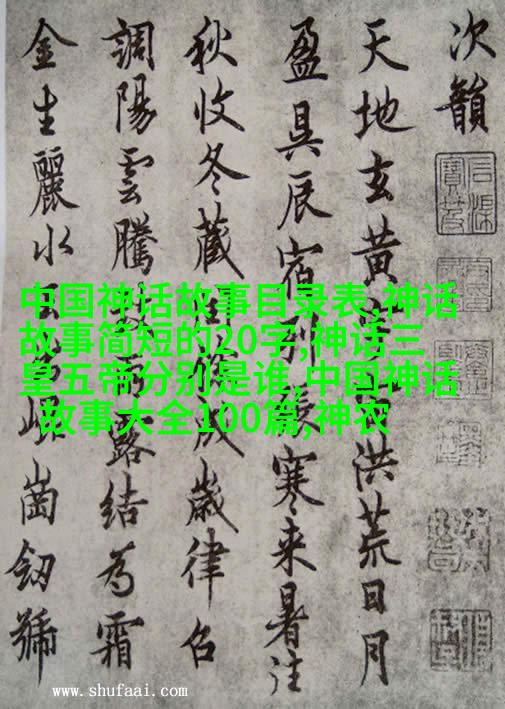 次韻
天地玄黃洪荒日月
盈昃辰宿列寒来暑往
秋收冬藏成歲律召
調陽雲騰露結為霜
金生麗水崗劒號
中国神话故事目录表,神话
故事简短的20字,神话三
皇五帝分别是谁,中国神话
故事大全100篇,神农
www.shufaai.com